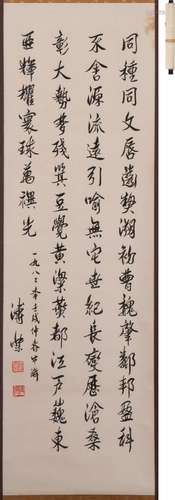 同種同文唇齒契溯初曹魏肇鄰邦盈科
不舍源流遠引喻無它世紀長變歷滄桑
彰大勢夢殘萁豆覺黃粱燕都江戶巍東
亞輝耀寰球萬禩光
一九八二年壬戌仲春中澣
溥傑